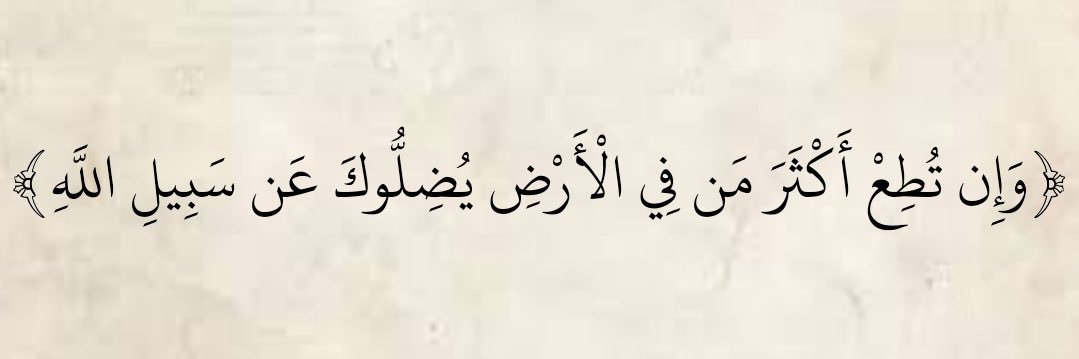 ﴿وَإِن تُطِعْ أَكْثَرَ مَن فِي الْأَرْضِ يُضِلُّوكَ عَن سَبِيلِ اللَّهِ﴾